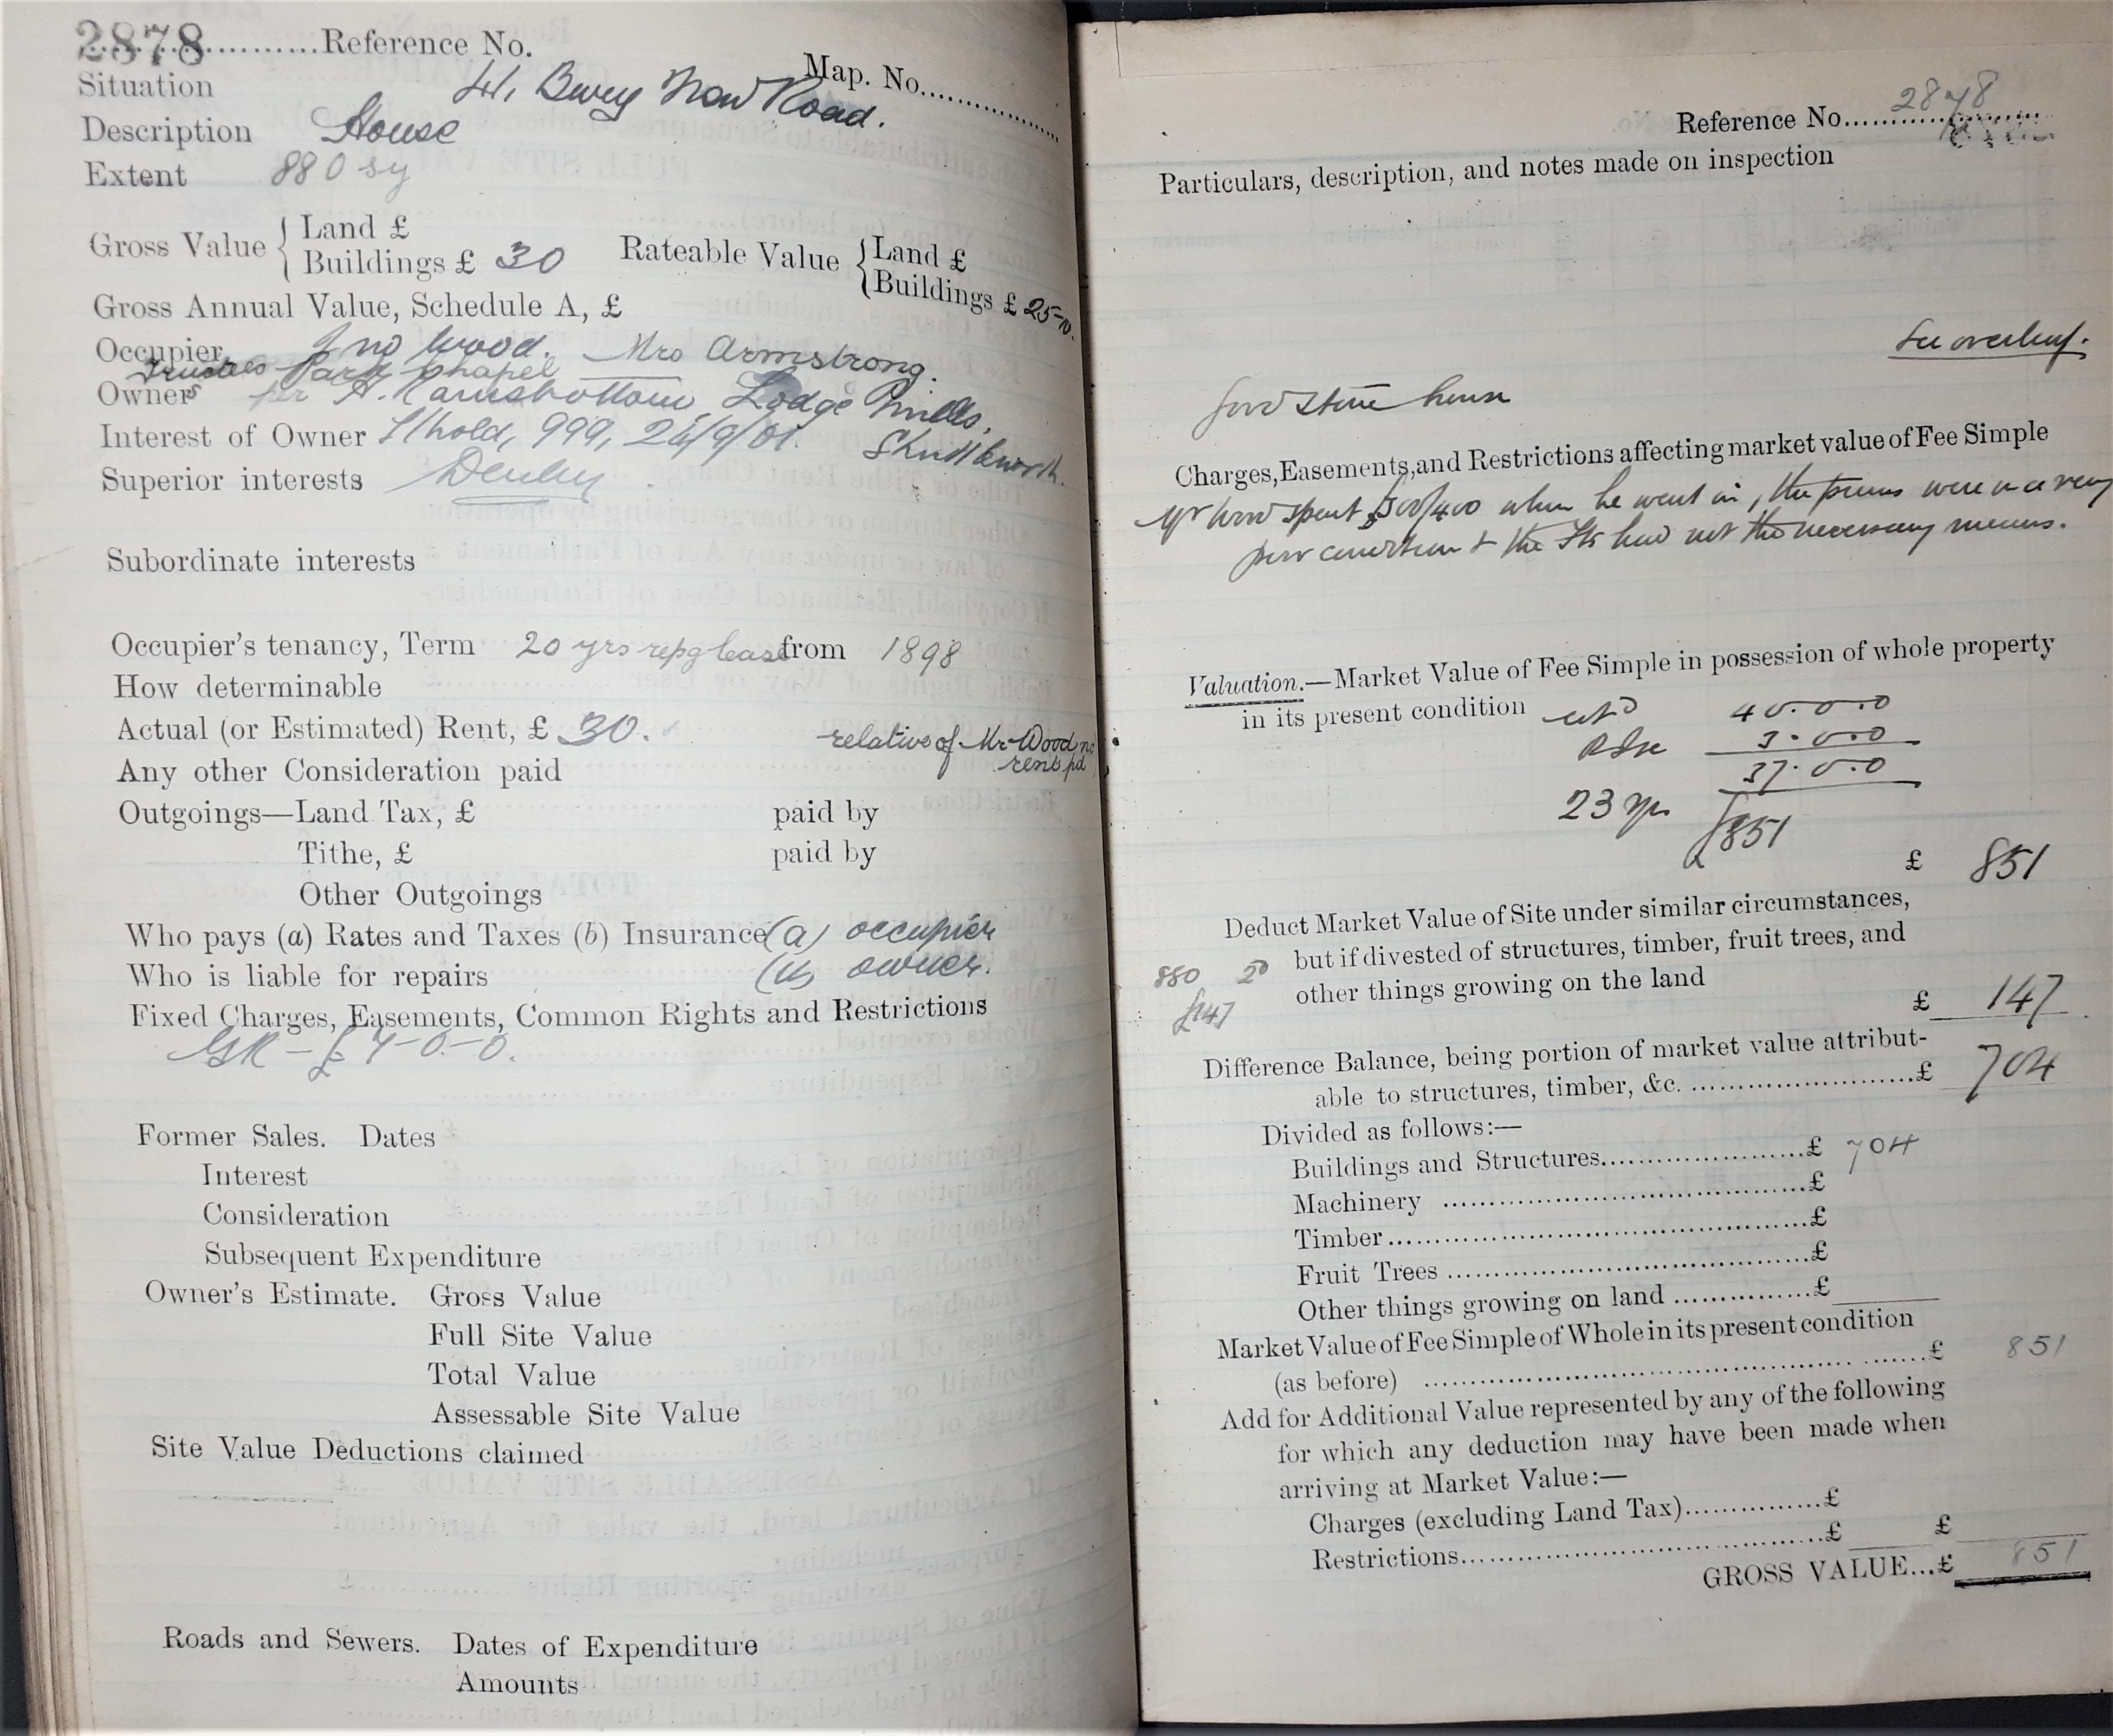 2878 Reference No.
Map. No.
Situation 41, Bury New Road.
Description House
Extent 880 sy
Gross Value { Land £
Buildings £ 30
Rateable Value { Land £
Buildings £ 25-10.
Gross Annual Value, Schedule A, £
Occupier Jno Wood. Mrs Armstrong.
Trustees Park Chapel
Owners per H. Ramsbottom, Lodge Mills, Shuttleworth.
Interest of Owner L/hold, 999, 26/9/01.
Superior interests Derby
Subordinate interests
Occupier's tenancy, Term 20 yrs repg lease from 1898
How determinable
Actual (or Estimated) Rent, £ 30. relative of Mr Wood no rent pd
Any other Consideration paid
Outgoings—Land Tax, £ paid by
Tithe, £ paid by
Other Outgoings
Who pays (a) Rates and Taxes (b) Insurance (a) occupier
Who is liable for repairs (b) owner.
Fixed Charges, Easements, Common Rights and Restrictions
GR - £7-0-0.
Former Sales. Dates
Interest
Consideration
Subsequent Expenditure
Owner's Estimate. Gross Value
Full Site Value
Total Value
Assessable Site Value
Site Value Deductions claimed
Roads and Sewers. Dates of Expenditure
Amounts
Reference No. 2878
Particulars, description, and notes made on inspection
See overleaf.
Good stone house
Charges, Easements, and Restrictions affecting market value of Fee Simple
Mr Wood spent £300/400 when he went in, the prems were in a very
poor condition & the Ts had not the necessary means.
Valuation.—Market Value of Fee Simple in possession of whole property
in its present condition 40.0.0
3.0.0
37.0.0
23 yp
£851
£ 851
Deduct Market Value of Site under similar circumstances,
but if divested of structures, timber, fruit trees, and
other things growing on the land
880
£147
£ 147
Difference Balance, being portion of market value attribut-
able to structures, timber, &c. £ 704
Divided as follows:—
Buildings and Structures £ 704
Machinery £
Timber £
Fruit Trees £
Other things growing on land £
Market Value of Fee Simple of Whole in its present condition
(as before) £ 851
Add for Additional Value represented by any of the following
for which any deduction may have been made when
arriving at Market Value:—
Charges (excluding Land Tax) £
Restrictions £ £
GROSS VALUE...£ 851